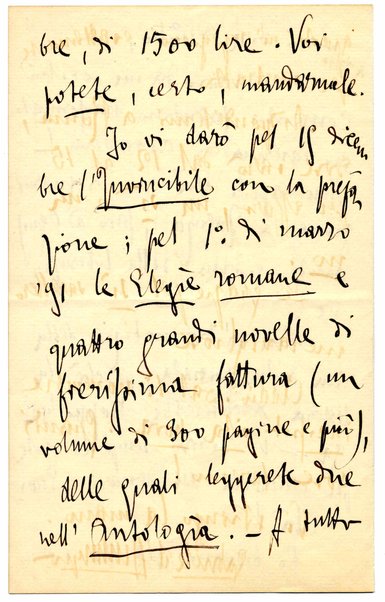 bre, di 1500 lire. Voi
potete, certo, mandarmele.
Io vi darò pel 15 dicem
bre l'Invincibile con la prefa
zione; pel 1º di marzo
'91 le Elegie romane e
quattro grandi novelle di
finissima fattura (un
volume di 300 pagine e più),
delle quali leggerete due
nell'Antologia. – A tutto